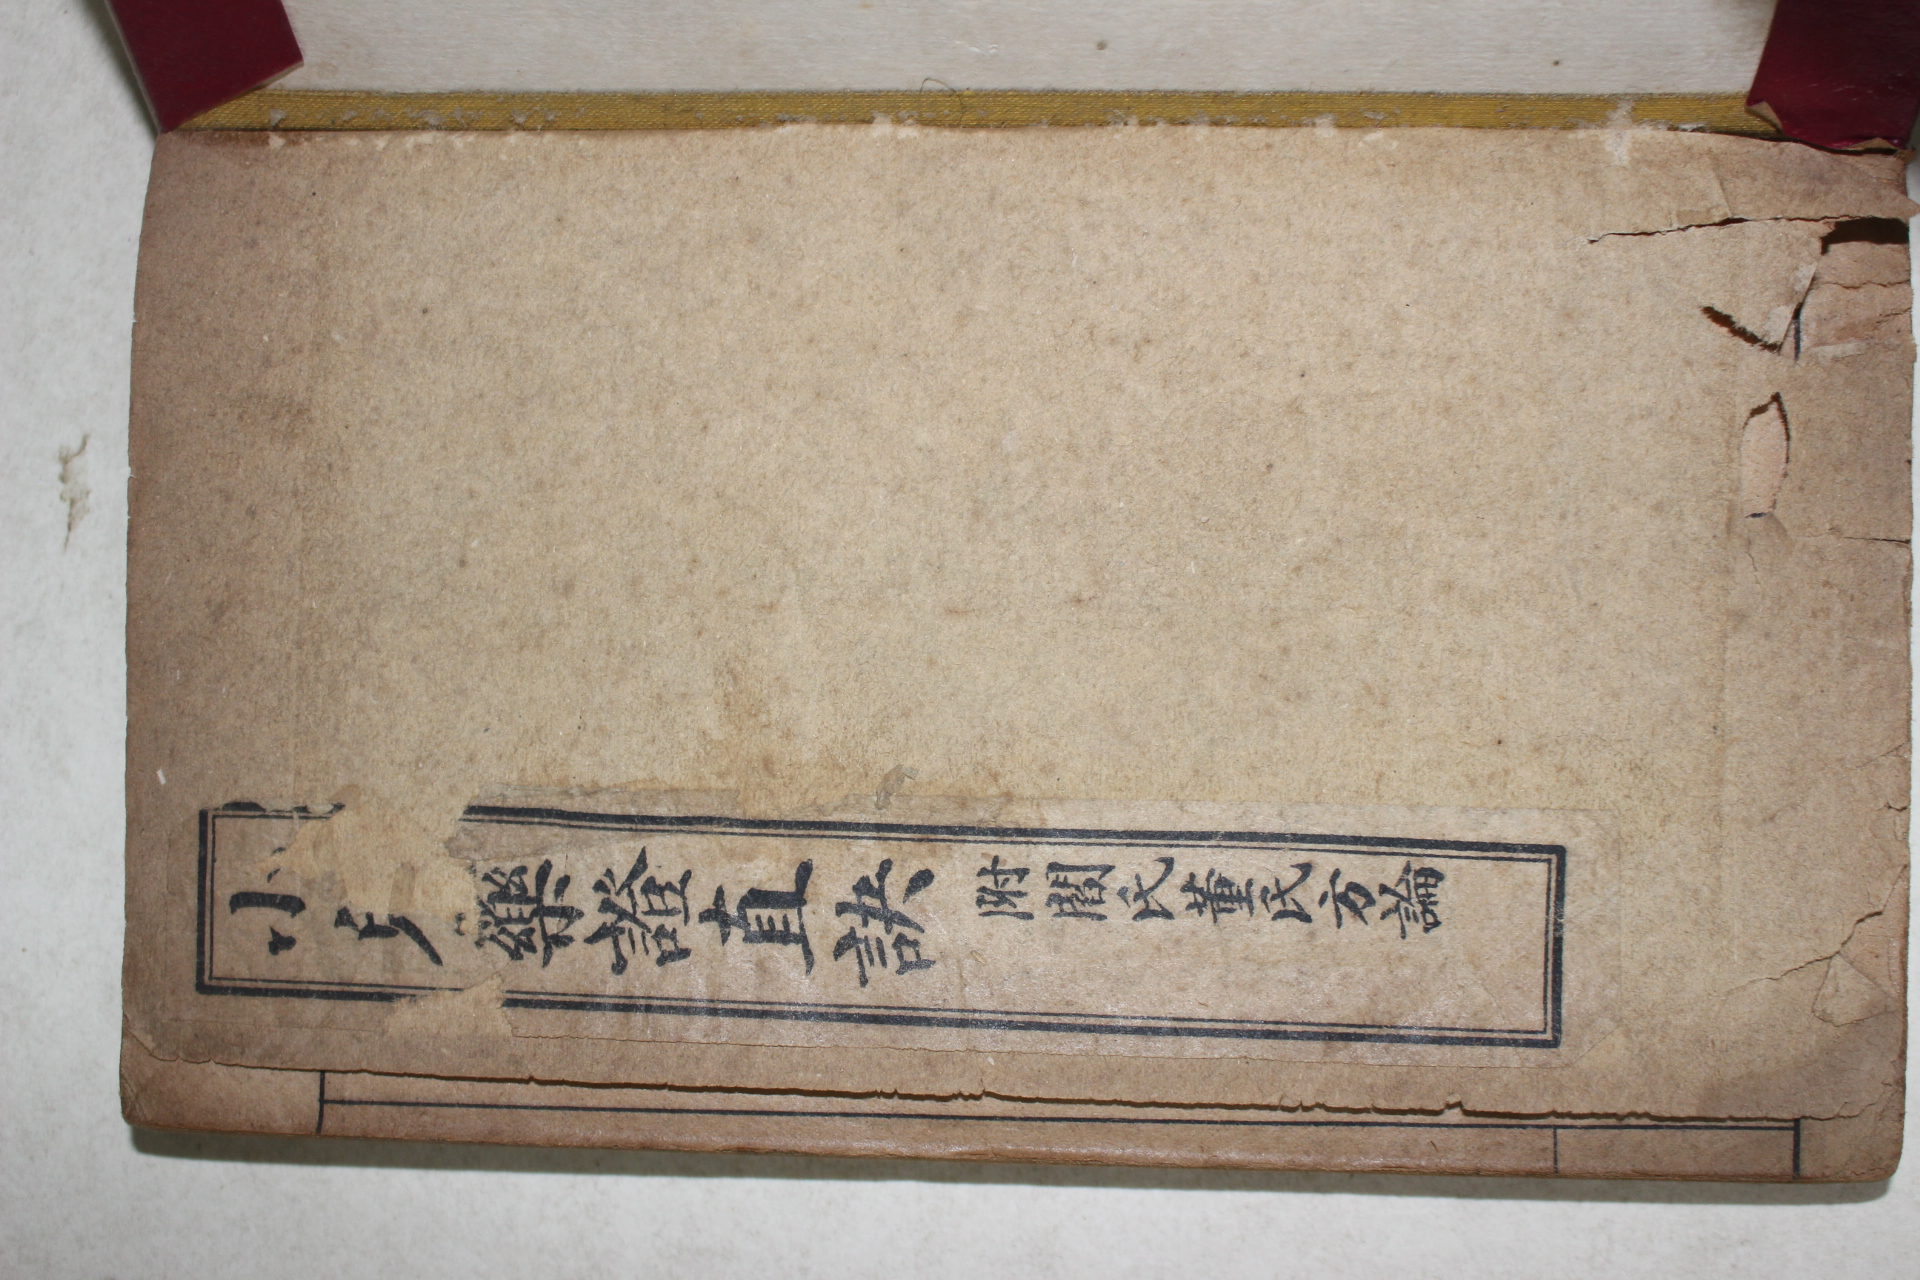 小兒藥證直訣 附閻氏董氏方論